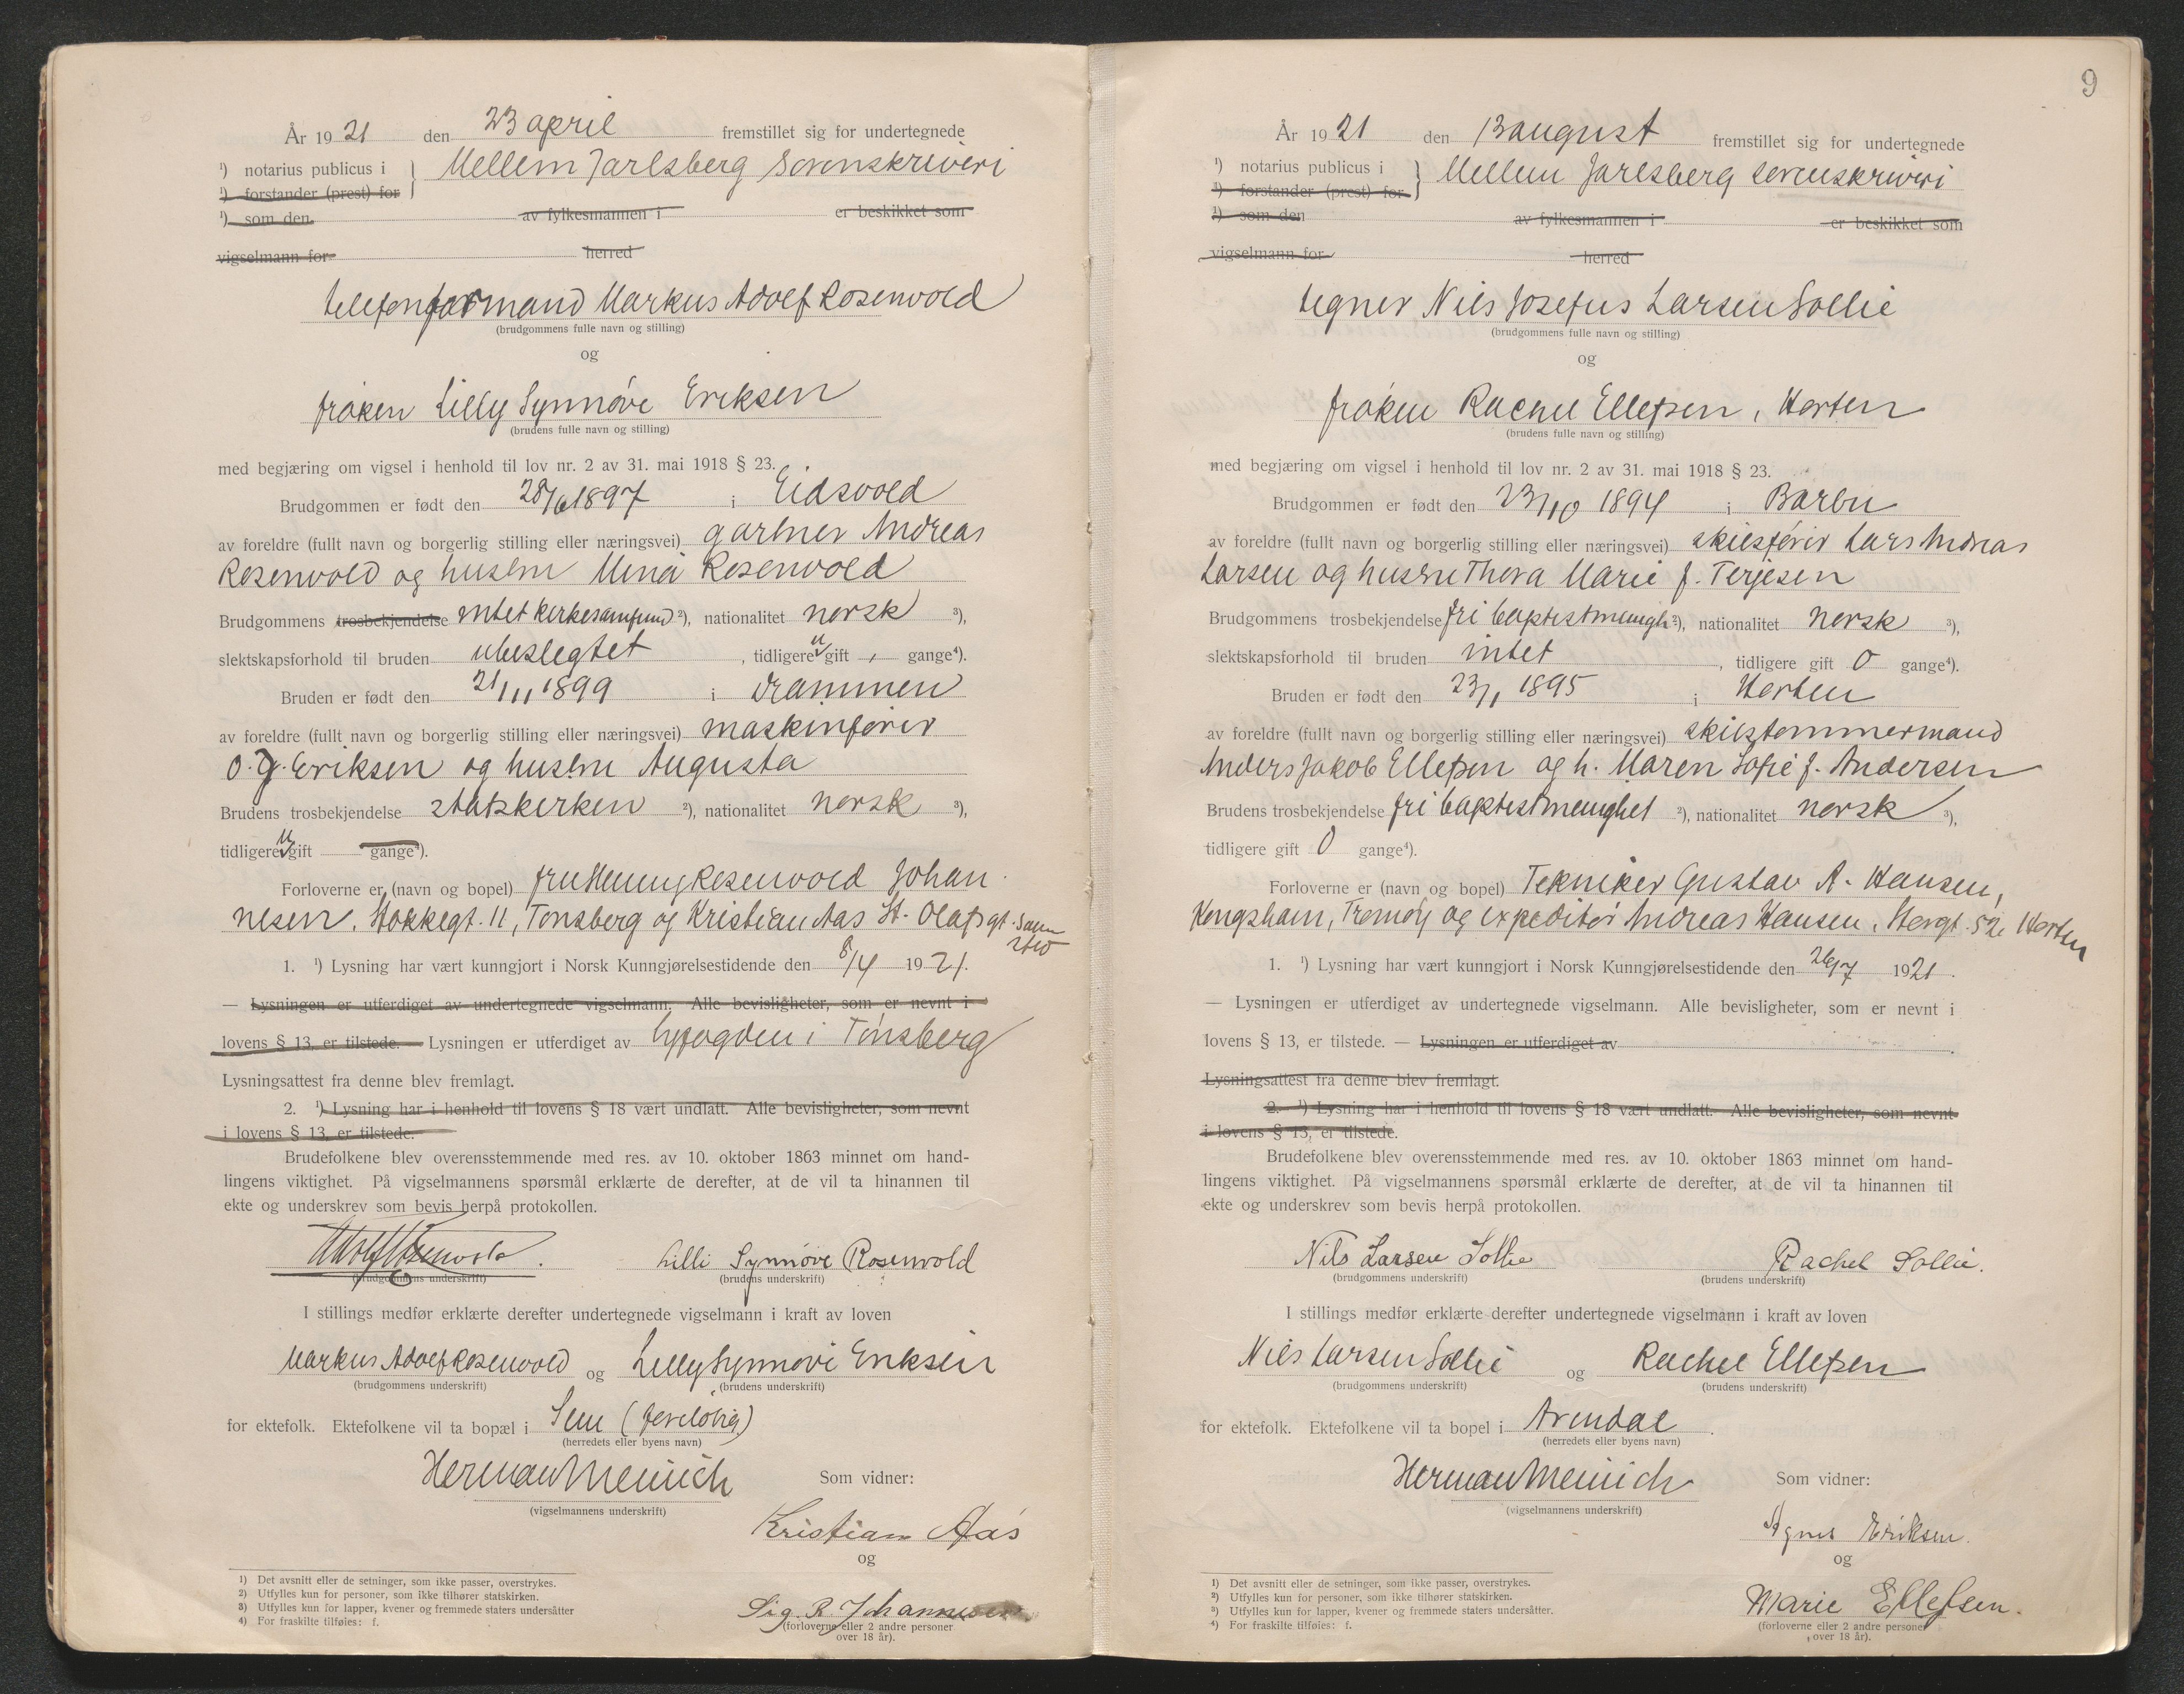 År 1921 den 23 april fremstillet sig for undertegnede
¹) notarius publicus i } Mellem Jarlsberg Sorenskriveri
¹) forstander (prest) for
¹) som den av fylkesmannen i er beskikket som
vigselmann for herred
telefonformand Markus Adolf Rosenvold
(brudgommens fulle navn og stilling)
og
frøken Lilly Synnøve Eriksen
(brudens fulle navn og stilling)
med begjæring om vigsel i henhold til lov nr. 2 av 31. mai 1918 § 23.
Brudgommen er født den 28/6 1897 i Eidsvold
av foreldre (fullt navn og borgerlig stilling eller næringsvei) gartner Andreas
Rosenvold og hustru Mina Rosenvold
Brudgommens trosbekjendelse intet kirkesamfund ²), nationalitet norsk ³),
slektskapsforhold til bruden ubeslegtet, tidligere u gift, gange⁴).
Bruden er født den 21/11 1899 i Drammen
av foreldre (fullt navn og borgerlig stilling eller næringsvei) maskinfører
O. J. Eriksen og hustru Augusta
Brudens trosbekjendelse statskirken ²), nationalitet norsk ³),
tidligere u gift gange⁴).
Forloverne er (navn og bopel) fru Henny Rosenvold Johan
nesen, Stokkegt. 11, Tønsberg og Kristian Aas St. Olafsgt. samme
sted
1. ¹) Lysning har vært kunngjort i Norsk Kunngjørelsestidende den 8/4 1921.
— Lysningen er utferdiget av undertegnede vigselmann. Alle bevisligheter, som er nevnt i
lovens § 13, er tilstede. — Lysningen er utferdiget av byfogden i Tønsberg
Lysningsattest fra denne blev fremlagt.
2. ¹) Lysning har i henhold til lovens § 18 vært undlatt. Alle bevisligheter, som nevnt
i lovens § 13, er tilstede.
Brudefolkene blev overensstemmende med res. av 10. oktober 1863 minnet om hand-
lingens viktighet. På vigselmannens spørsmål erklærte de derefter, at de vil ta hinannen til
ekte og underskrev som bevis herpå protokollen.
Adolf Rosenvold. Lilli Synnøve Rosenvold
(brudgommens underskrift) (brudens underskrift)
I stillings medfør erklærte derefter undertegnede vigselmann i kraft av loven
Markus Adolf Rosenvold og Lilly Synnøve Eriksen
(brudgommens underskrift) (brudens underskrift)
for ektefolk. Ektefolkene vil ta bopæl i Sem (foreløbig)
(herredets eller byens navn)
Herman Meinich Som vidner:
(vigselmannens underskrift)
Kristian Aas
og
Sig. R. Johannesen
(forloverne eller 2 andre personer
over 18 år).
1) Det avsnitt eller de setninger, som ikke passer, overstrykes.
2) Utfylles kun for personer, som ikke tilhører statskirken.
3) Utfylles kun for lapper, kvener og fremmede staters undersåtter
4) For fraskilte tilføies: f.
9
År 1921 den 13 august fremstillet sig for undertegnede
¹) notarius publicus i } Mellem Jarlsberg sorenskriveri
¹) forstander (prest) for
¹) som den av fylkesmannen i er beskikket som
vigselmann for herred
tegner Nils Josefus Larsen Sollie
(brudgommens fulle navn og stilling)
og
frøken Rachel Ellefsen, Horten
(brudens fulle navn og stilling)
med begjæring om vigsel i henhold til lov nr. 2 av 31. mai 1918 § 23.
Brudgommen er født den 23/10 1894 i Barbu
av foreldre (fullt navn og borgerlig stilling eller næringsvei) skibsfører Lars Andreas
Larsen og hustru Thora Marie f. Terjesen
Brudgommens trosbekjendelse fri baptistmengh ²), nationalitet norsk ³),
slektskapsforhold til bruden intet, tidligere gift 0 gange⁴).
Bruden er født den 23/1 1895 i Horten
av foreldre (fullt navn og borgerlig stilling eller næringsvei) skibstømmermand
Anders Jakob Ellefsen og h. Maren Sofie f. Andersen
Brudens trosbekjendelse fri baptistmenghet ²), nationalitet norsk ³),
tidligere gift 0 gange⁴).
Forloverne er (navn og bopel) Tekniker Gustav A. Hansen,
Kongshavn, Tromøy og expeditør Andreas Hansen, Storgt. 52, Horten
1. ¹) Lysning har vært kunngjort i Norsk Kunngjørelsestidende den 26/7 1921.
— Lysningen er utferdiget av undertegnede vigselmann. Alle bevisligheter, som er nevnt i
lovens § 13, er tilstede. — Lysningen er utferdiget av
Lysningsattest fra denne blev fremlagt.
2. ¹) Lysning har i henhold til lovens § 18 vært undlatt. Alle bevisligheter, som nevnt
i lovens § 13, er tilstede.
Brudefolkene blev overensstemmende med res. av 10. oktober 1863 minnet om hand-
lingens viktighet. På vigselmannens spørsmål erklærte de derefter, at de vil ta hinannen til
ekte og underskrev som bevis herpå protokollen.
Nils Larsen Sollie Rachel Sollie.
(brudgommens underskrift) (brudens underskrift)
I stillings medfør erklærte derefter undertegnede vigselmann i kraft av loven
Nils Larsen Sollie og Rachel Ellefsen
(brudgommens underskrift) (brudens underskrift)
for ektefolk. Ektefolkene vil ta bopel i Arendal.
(herredets eller byens navn)
Herman Meinich Som vidner:
(vigselmannens underskrift)
Agnes Eriksen.
og
Marie Ellefsen.
(forloverne eller 2 andre personer
over 18 år).
1) Det avsnitt eller de setninger, som ikke passer, overstrykes.
2) Utfylles kun for personer, som ikke tilhører statskirken.
3) Utfylles kun for lapper, kvener og fremmede staters undersåtter.
4) For fraskilte tilføies: f.